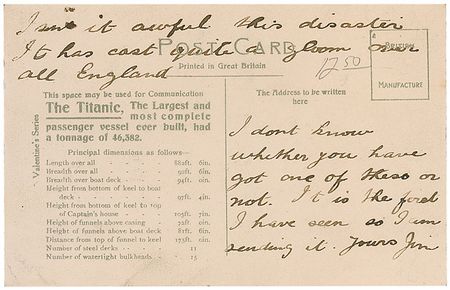 Isn't it awful this disaster
It has cast quite a gloom over
all England
POST CARD
Printed in Great Britain
1250
BRITISH
MANUFACTURE
Valentine's Series
This space may be used for Communication
The Titanic, The Largest and
most complete
passenger vessel ever built, had
a tonnage of 46,382.
Principal dimensions as follows—
Length over all - - - 882ft. 6in.
Breadth over all - - - 92ft. 6in.
Breadth over boat deck - - 94ft. 0in.
Height from bottom of keel to boat
deck - - - - 97ft. 4in.
Height from bottom of keel to top
of Captain's house - - 105ft. 7in.
Height of funnels above casing 72ft. 0in.
Height of funnels above boat deck 81ft. 6in.
Distance from top of funnel to keel 175ft. 0in.
Number of steel decks - - 11
Number of watertight bulkheads - 15
The Address to be written
here
I dont know
whether you have
got one of these or
not. It is the first
I have seen so I am
sending it. Yours Jim